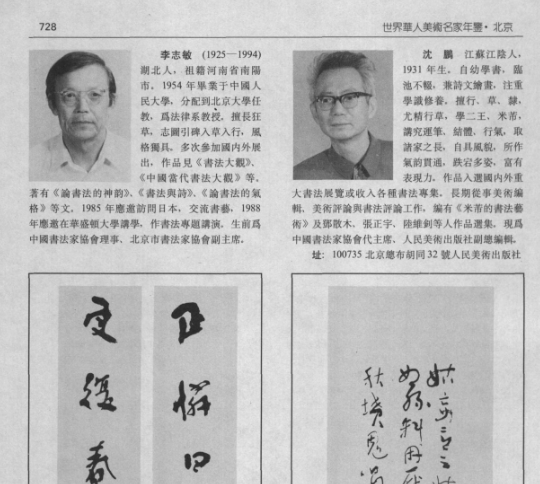 728
世界華人美術名家年鑒·北京
李志敏 (1925—1994)
湖北人，祖籍河南省南陽
市。1954 年畢業于中國人
民大學，分配到北京大學任
教，爲法律系教授，擅長狂
草，志圖引碑入草入行，風
格獨具，多次參加國内外展
出，作品見《書法大觀》、
《中國當代書法大觀》等。
著有《論書法的神韵》、《書法與詩》、《論書法的氣
格》等文。1985 年應邀訪問日本，交流書藝，1988
年應邀在華盛頓大學講學，作書法專題講演。生前爲
中國書法家協會理事、北京市書法家協會副主席。
沈 鵬 江蘇江陰人，
1931 年生。自幼學書，臨
池不輟，兼詩文繪畫，注重
學識修養，擅行、草、隸，
尤精行草，學二王、米芾，
講究運筆、結體、行氣，取
諸家之長，自具風貌，所作
氣韵貫通，跌宕多姿，富有
表現力。作品入選國内外重
大書法展覽或收入各種書法專集。長期從事美術編
輯、美術評論與書法評論工作，編有《米芾的書法藝
術》及鄧散木、張正宇、陸維釗等人作品選集。現爲
中國書法家協會代主席、人民美術出版社副總編輯。
址：100735 北京總布胡同 32 號人民美術出版社
更復春
日